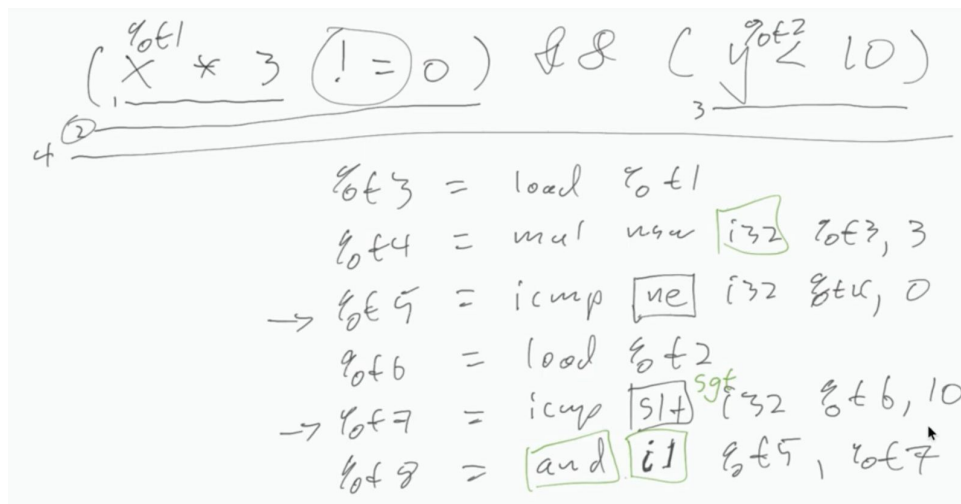 %t1 %t2
(x * 3 != 0) && (y < 10)
1 3
2
4
%t3 = load %t1
%t4 = mul nsw i32 %t3, 3
→ %t5 = icmp ne i32 %t4, 0
%t6 = load %t2
sgt
→ %t7 = icmp slt i32 %t6, 10
%t8 = and i1 %t5, %t7